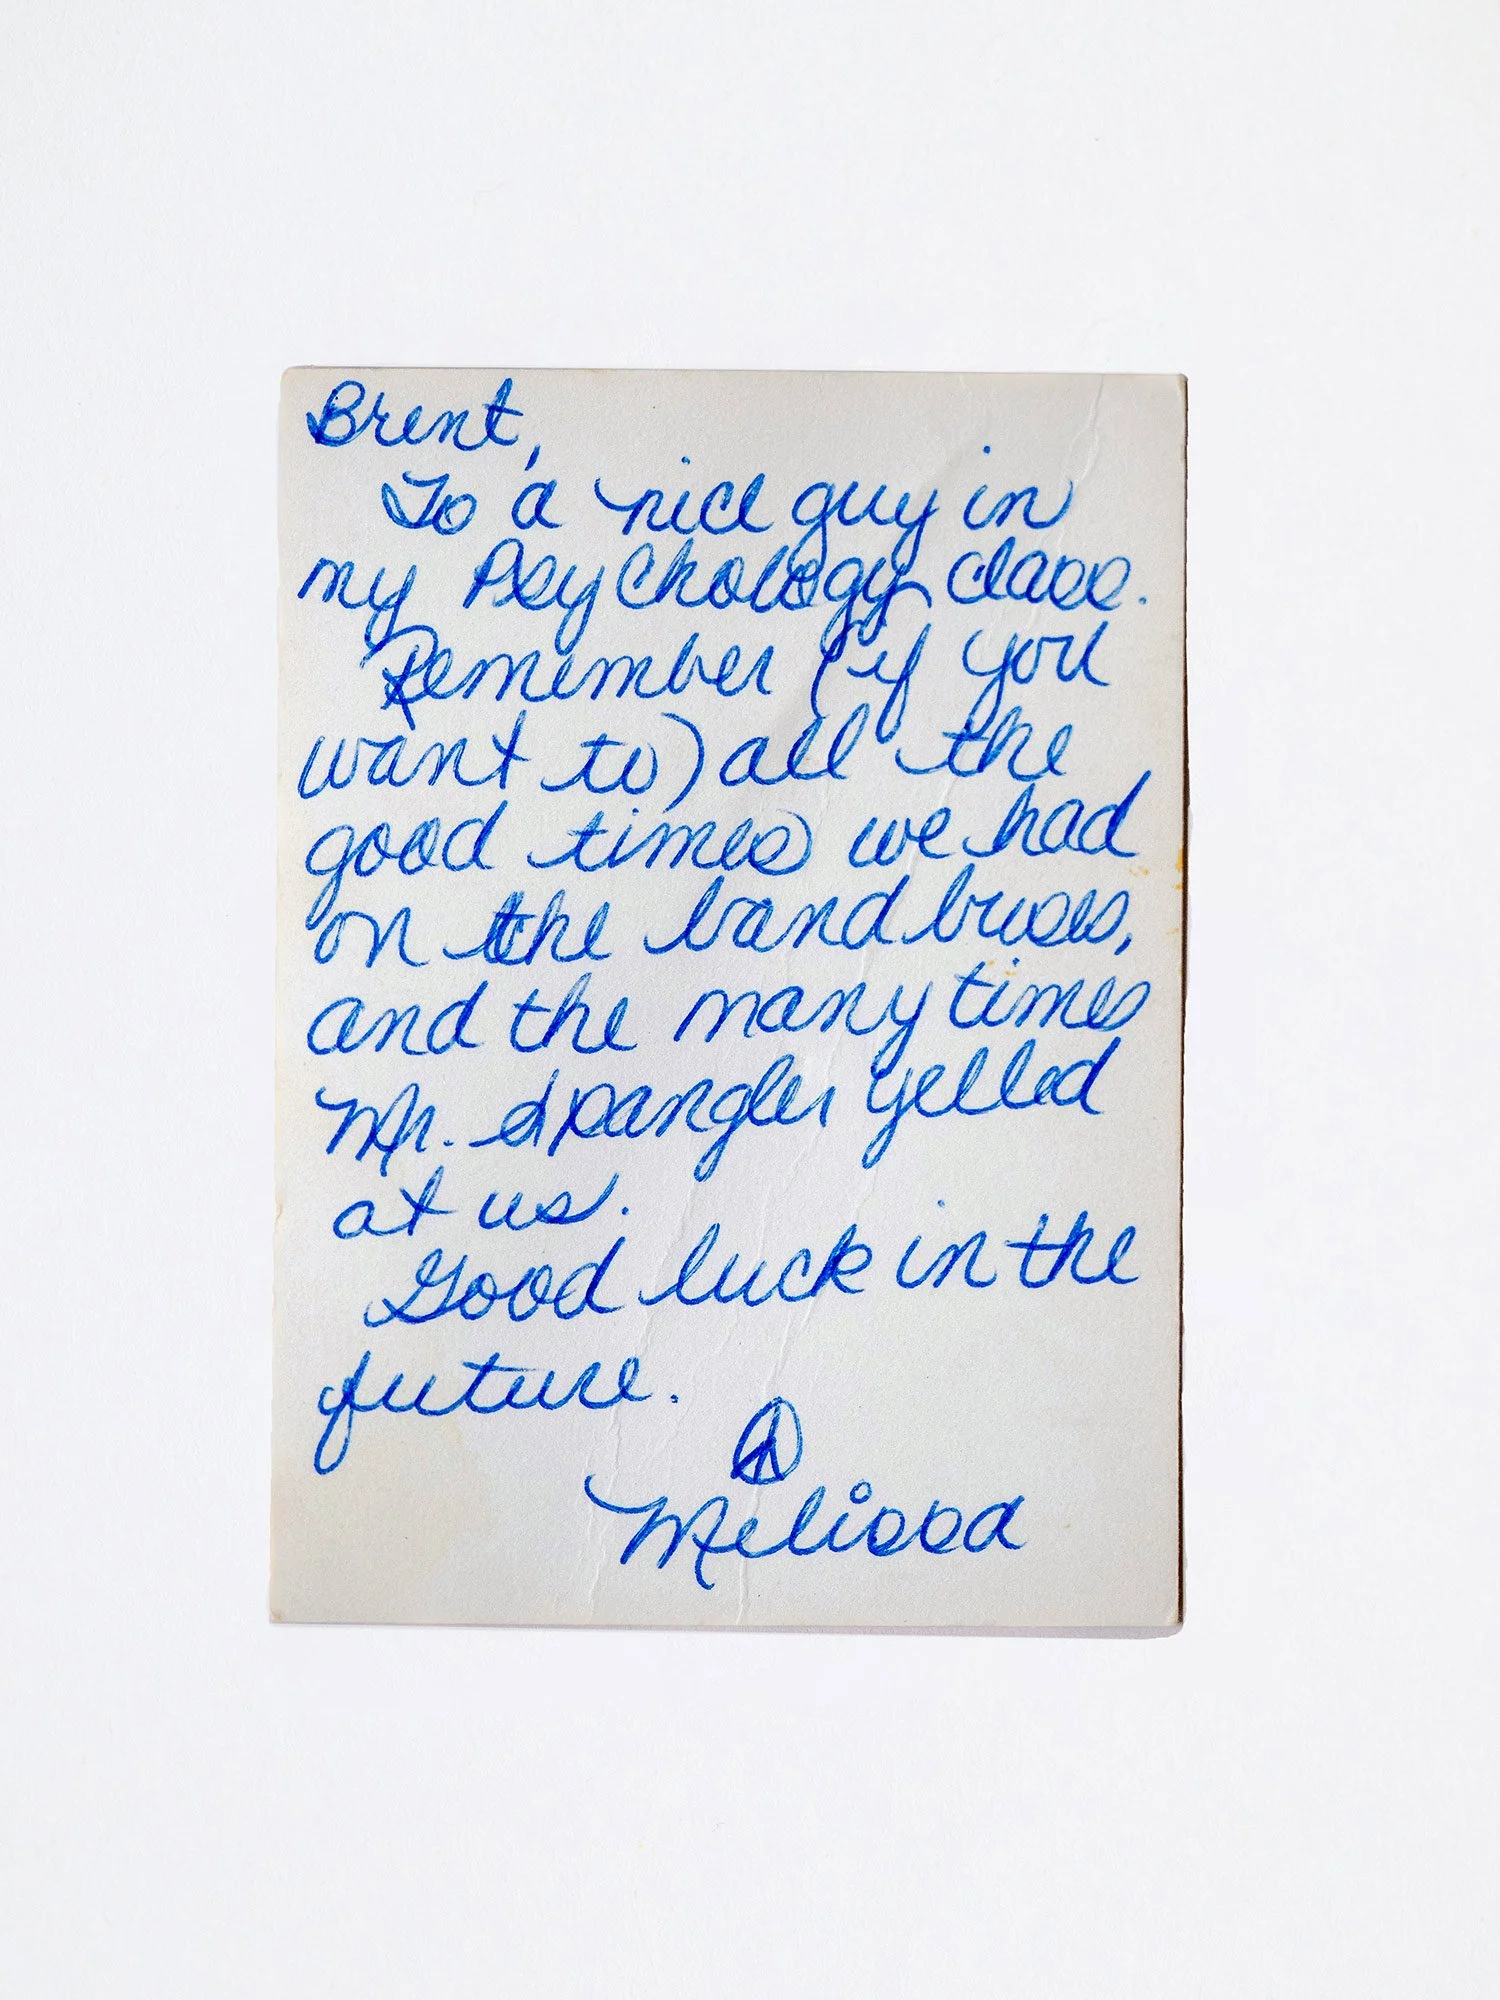 Brent,
To a nice guy in
my Psychology class.
Remember (if you
want to) all the
good times we had
on the band buses,
and the many times
Mr. Spangler yelled
at us.
Good luck in the
future.
Melissa